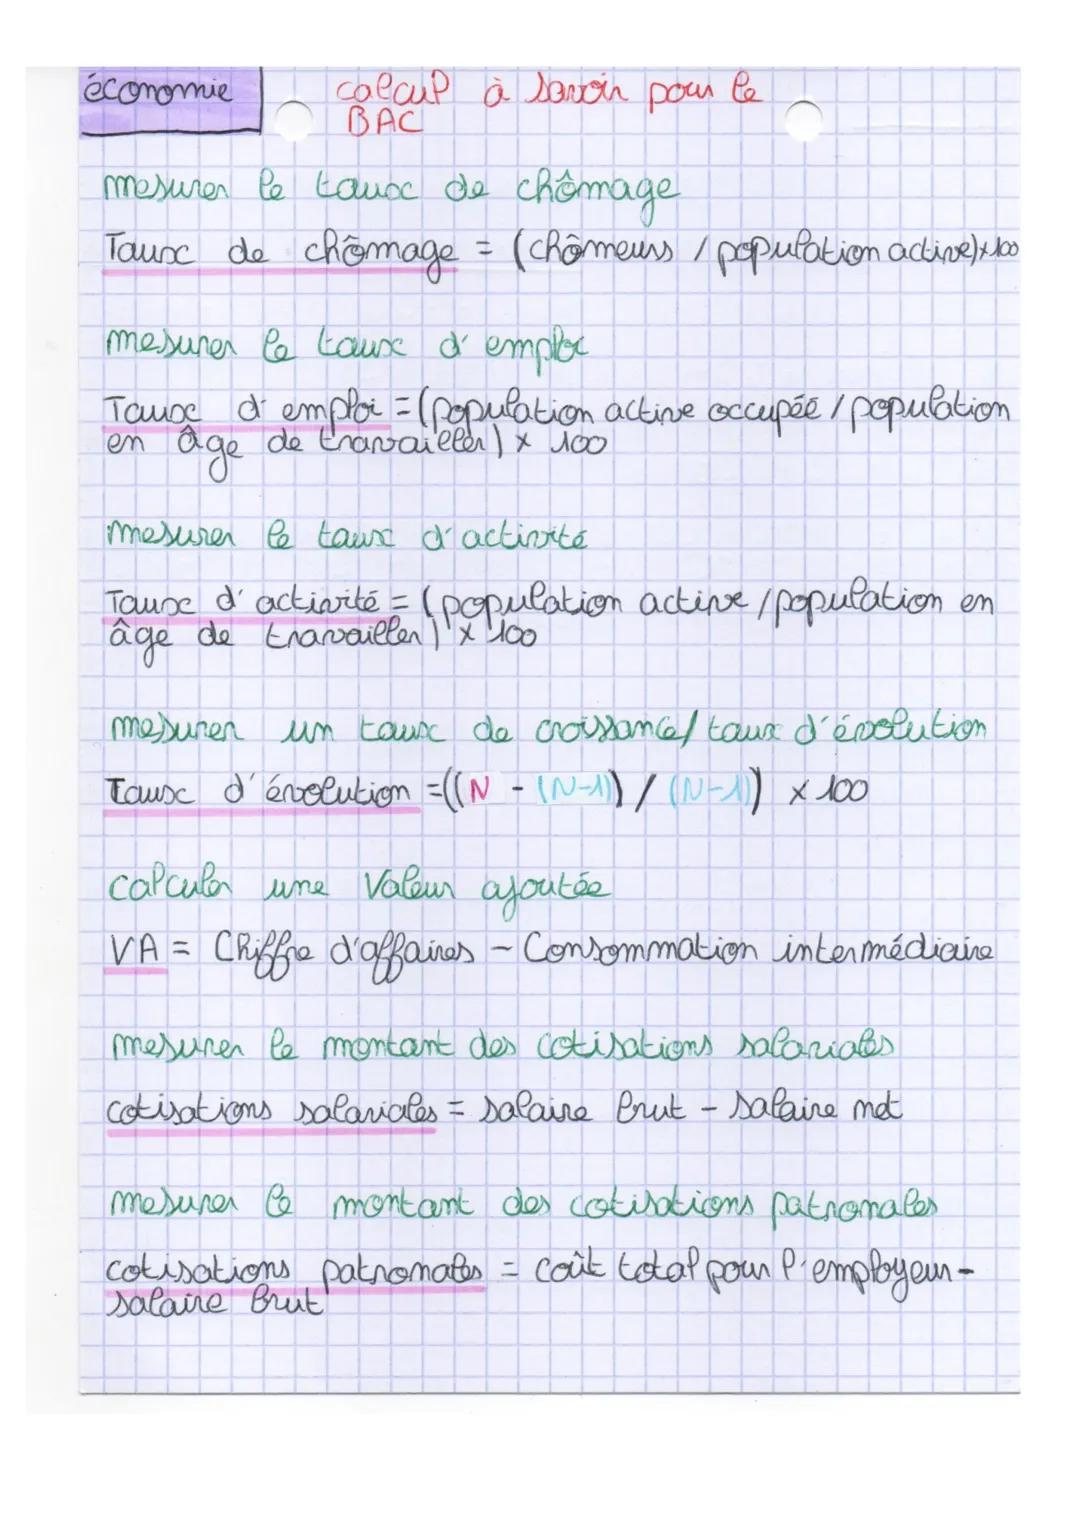 économie
calcul à savoir pour le
BAC
mesurer le taux de chômage
Taux de chômage = (chômeurs / population active) x 100
mesurer le taux d'emploi
Taux d'emploi = (population active occupée / population
en âge de travailler) x 100
mesurer le taux d'activité
Taux d'activité = (population active / population en
âge de travailler) x 100
mesurer un taux de croissance / taux d'évolution
Taux d'évolution = ((N - (N-1)) / (N-1)) x 100
calculer une Valeur ajoutée
VA = Chiffre d'affaires - Consommation intermédiaire
mesurer le montant des cotisations salariales
cotisations salariales = salaire brut - salaire net
mesurer le montant des cotisations patronales
cotisations patronales = coût total pour l'employeur -
salaire brut